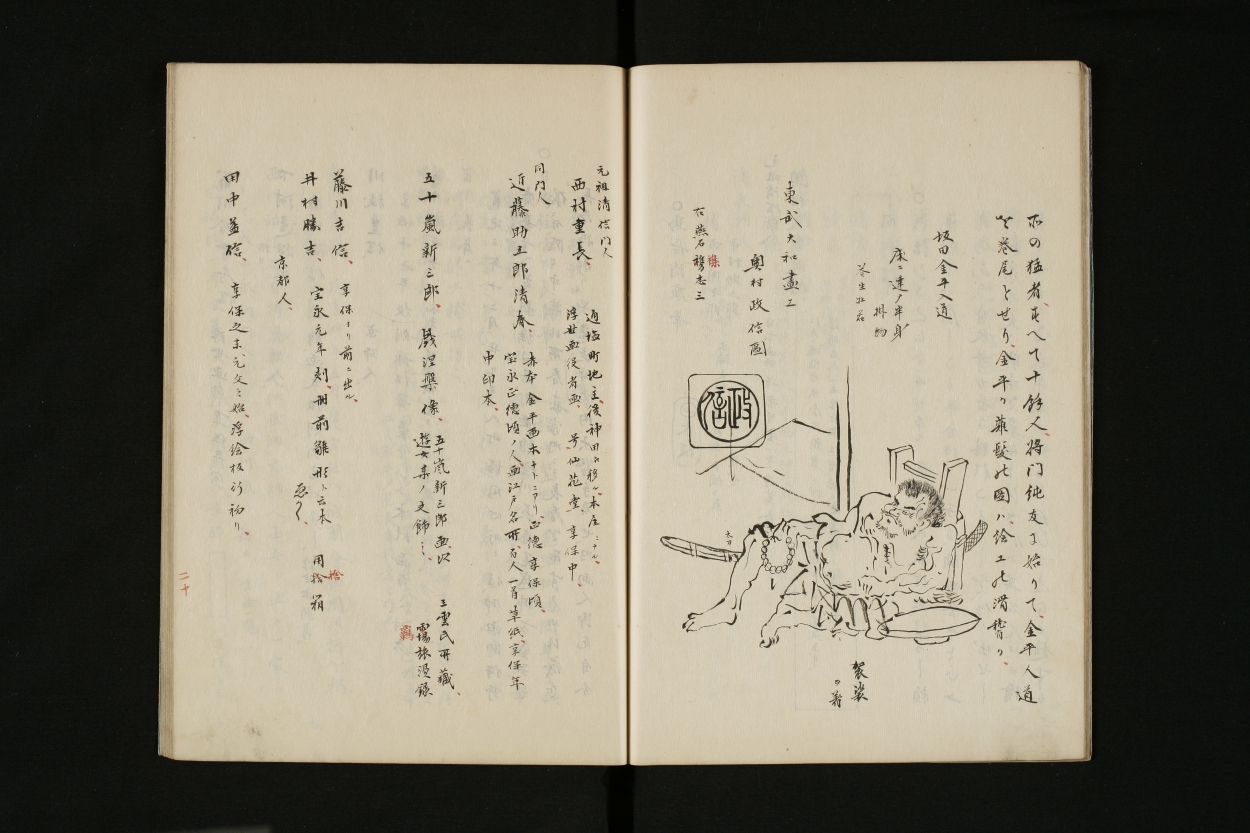 尓の猛者すへて十餘人将門純友に始りて金平入道
を巻尾とせり金平り薙髪の図は絵工の滑稽り
坂田金平入道
康ニ達ノ半身
掛物
東武大和畫工
奥村政信圖
右燕石雜志三
政信
太刀
袈裟
の箱
元祖清信門人
西村重長
通塩町地主後神田に移ル本庄ニテル
浮世画役者画 号仙花堂 享保中
同門人
近藤助五郎清春
赤本金平画本ナトニアリ正徳享保頃
宝永正徳頃ノ人画江戸名所百人一首草紙享保年
中印本
五十嵐新三郎 戯涅槃像
五十嵐新三郎画以
遊女某ノ文飾之
三雲氏所藏
羇旅漫録
藤川吉信 享保より前ニ出ル
井村勝吉 宝永元年刻
雛形ト云本
用捨箱
京都人
田中益信 享保之末元文之始浮絵板行初り
二十